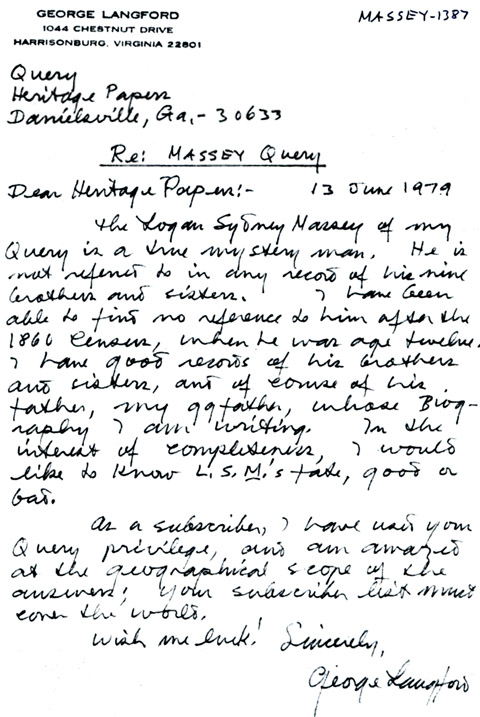 GEORGE LANGFORD
1044 CHESTNUT DRIVE
HARRISONBURG, VIRGINIA 22801
MASSEY-1387
Query
Heritage Papers
Danielsville, Ga,- 30633
Re: MASSEY Query
Dear Heritage Papers:- 13 June 1979
The Logan Sydney Massey of my
Query is a true mystery man. He is
not referred to in any record of his nine
brothers and sisters. I have been
able to find no reference to him after the
1860 Census, when he was age twelve.
I have good records of his brothers
and sisters, and of course of his
father, my ggfather, whose Biog-
raphy I am writing. In the
interest of completeness, I would
like to know L.S.M.'s fate, good or
bad.
As a subscriber, I have used your
Query privilege, and am amazed
at the geographical scope of the
answers; your subscriber list must
cover the world.
Wish me luck! Sincerely,
George Langford